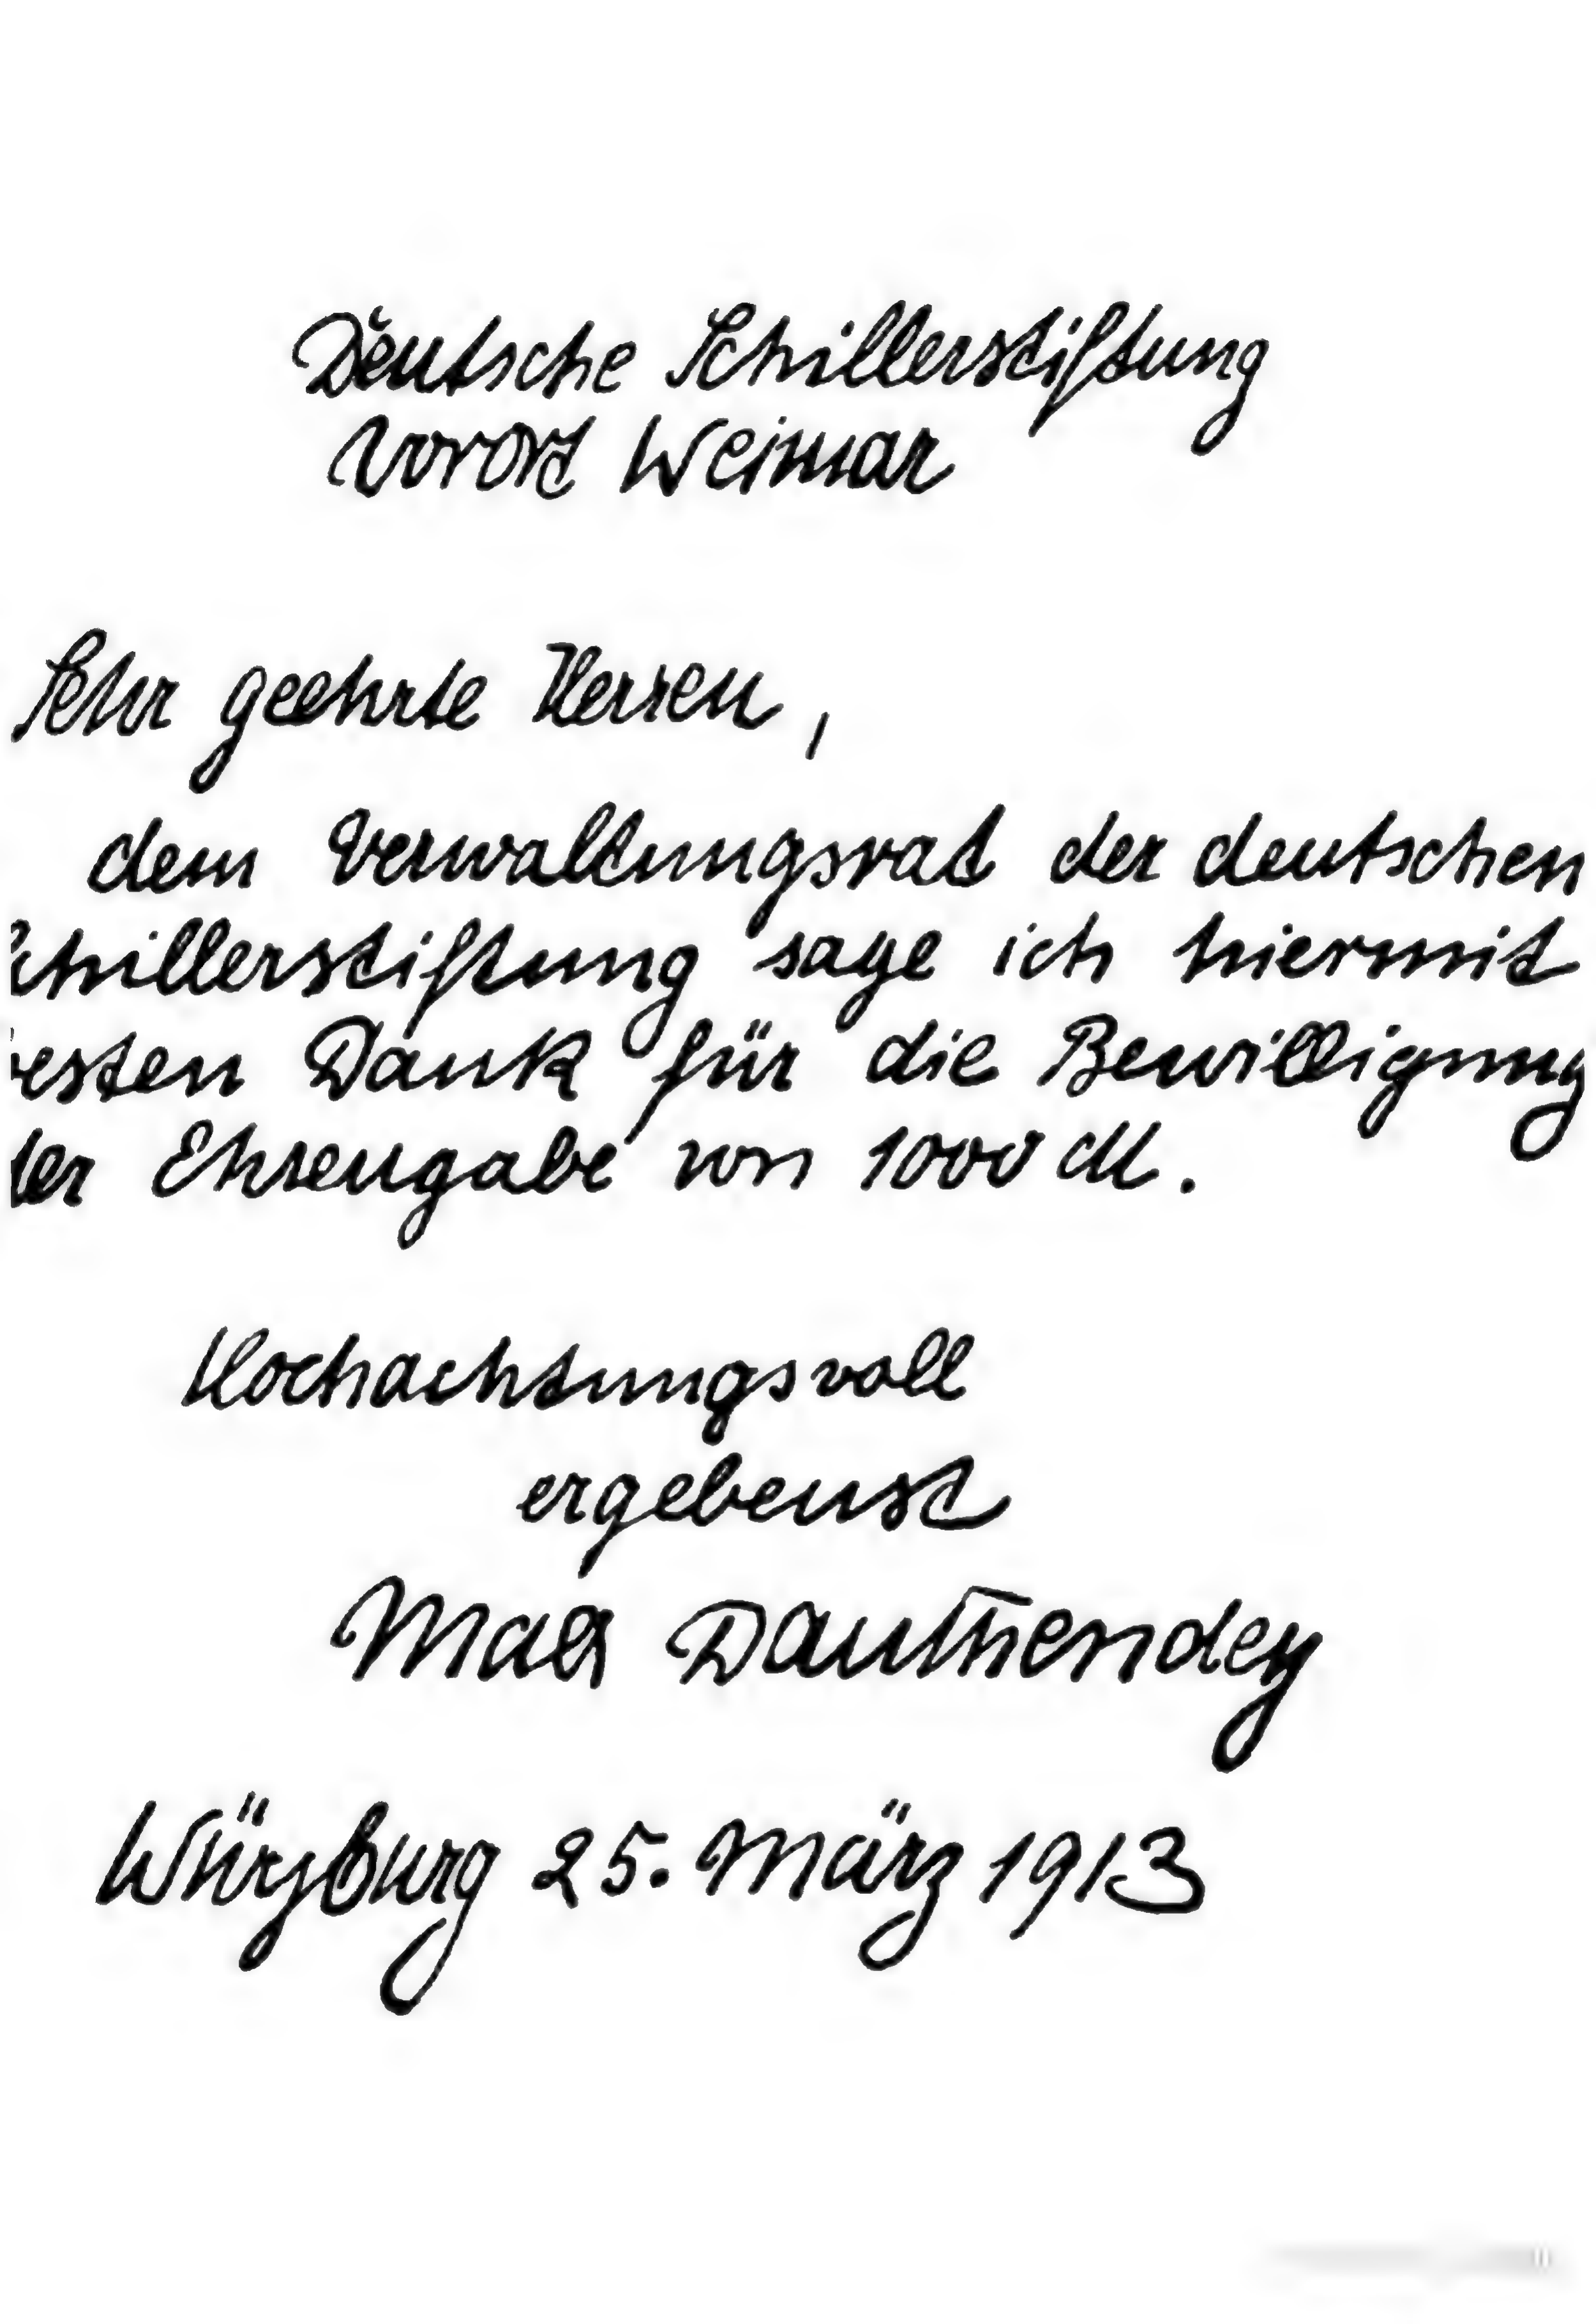 Deutsche Schillerstiftung
Vorort Weimar
Sehr geehrte Herren,
dem Verwaltungsrat der deutschen
Schillerstiftung sage ich hiermit
besten Dank für die Bewilligung
der Ehrengabe von 1000 M.
Hochachtungsvoll
ergebenst
Max Dauthendey
Würzburg 25. März 1913